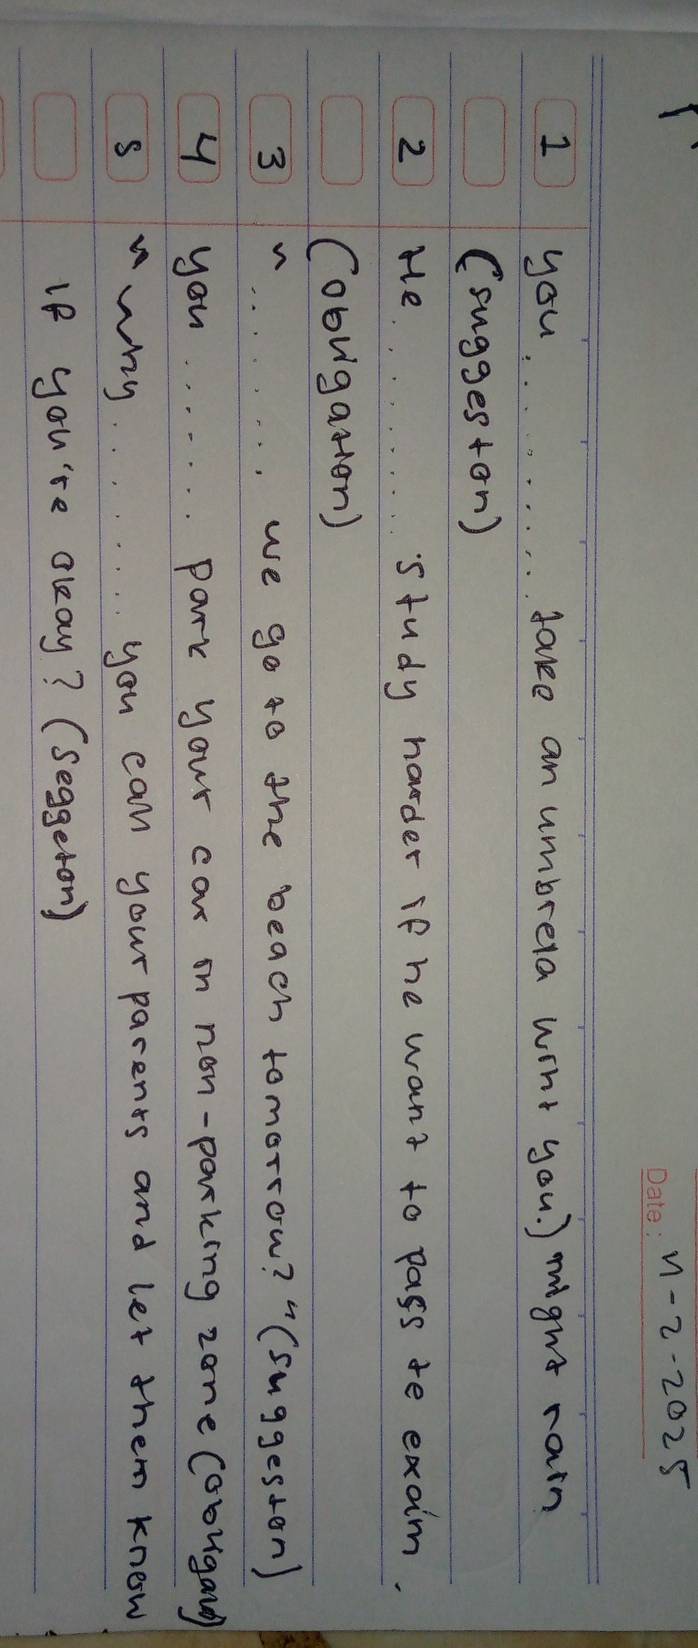 Date: 11-2-2025
1 you ........... take an umbrela wint you.) might rain
(suggeston)
2 He ........... study harder if he want to pass te exam.
(obligation)
3 " ........., we go to the beach tomorrow? " (suggeston)
4 you ........ park your car in non-parking zone (obligaw)
5 " why .......... you call your parents and let them know
if you're okay? (seggeton)